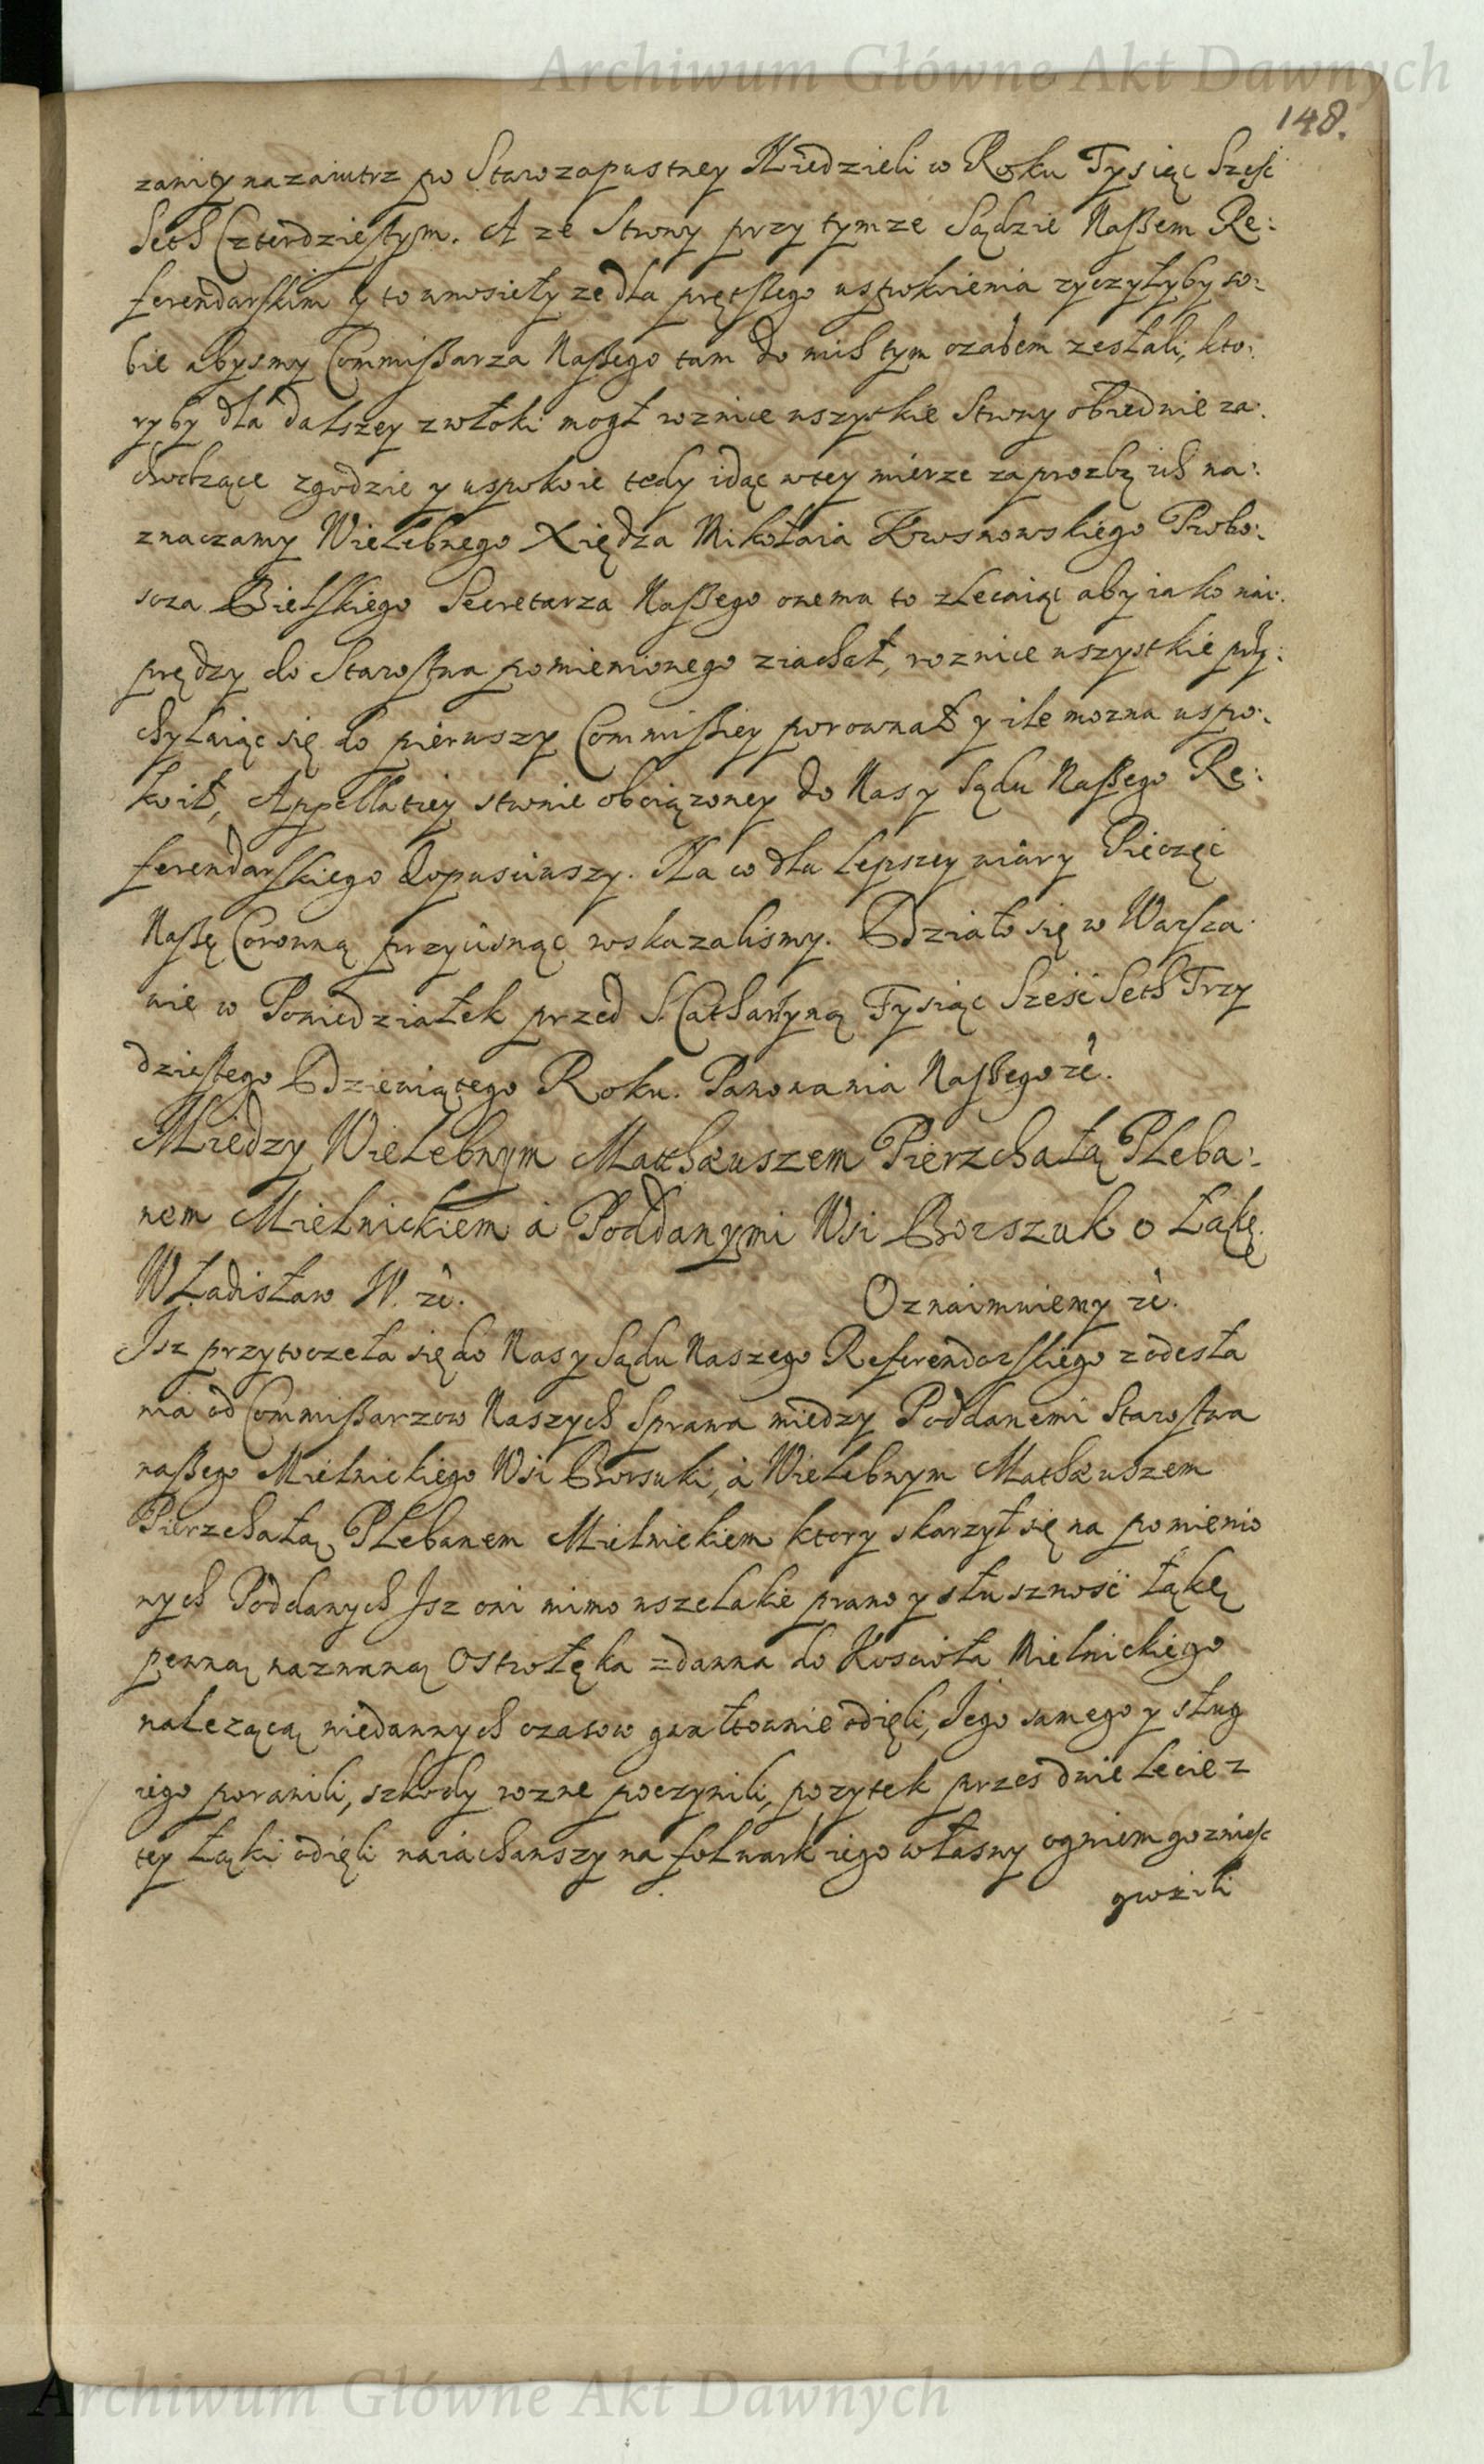 Archiwum Główne Akt Dawnych
148.
zawity nazaiutrz po Starozapustney Niedzieli w Roku Tysiąc Sześć
Seth Czterdziestym. A ze Strony przy tymze Sądzie Naßem Re:
ferendarskim y to wnosieły ze dla prętßego uspokoienia zyczyłyby so:
bie abysmy Commißarza Naßego tam do nich tym czasem zesłali, kto:
ryby dla dalszey zwłoki mogł roznice wszystkie Strony obiedwie za:
chodzące zgodzie y uspokoie tedy idąc w tey mierze za prozbą ich na:
znaczamy Wielebnego Xiędza Mikołaia Krosnowskiego Probo:
scza Bielskiego Secretarza Naßego onemu to zlecaiąc aby iako nai:
prędzy do Starostwa pomienionego ziachał, roznice wszystkie przy:
chylaiąc się do pierwszy Commißiey porownał y ile mozna uspo:
koił, Appellatiey stronie obciązoney do Nas y Sądu Naßego Re:
ferendarskiego dopusciwszy. Na co dla lepszey wiary Pieczęć
Naßę Coronną przycisnąc wskazalismy. Działo się w Warsza
wie w Poniedziałek przed S. Catharzyną Tysiąc Sześć Seth Trzy
dziestego Dziewiątego Roku. Panowania Naßego zč.
Miedzy Wielebnym Matthæuszem Pierzchałą Pleba:
nem Mielnickiem à Poddanymi Wsi Borszuk o Łąkę.
Władisław IV. zč.
Oznaimuiemy zč.
Jsz przytoczeła się do Nas y Sądu Naszego Referendarskiego z odesła
nia od Commißarzow Naszych Sprawa miedzy Poddanemi Starostwa
naßego Mielnickiego Wsi Borsuki, à Wielebnym Matthæuszem
Pierzchałą Plebanem Mielnickiem ktory skarzył się na pomienio
nych Poddanych Jsz oni mimo wszelakie prawo y słusznosć łąkę
pewną nazwaną Ostrołęka zdawna do Koscioła Mielnickiego
nalezącą niedawnych czasow gwałtownie odięli, Jego samego y sług
iego poranili, szkody rozne poczynili, pozytek przes dwie lecie z
tey łąki odięli naiachawszy na folwark iego własny ogniem go znieść
grozili
Archiwum Główne Akt Dawnych